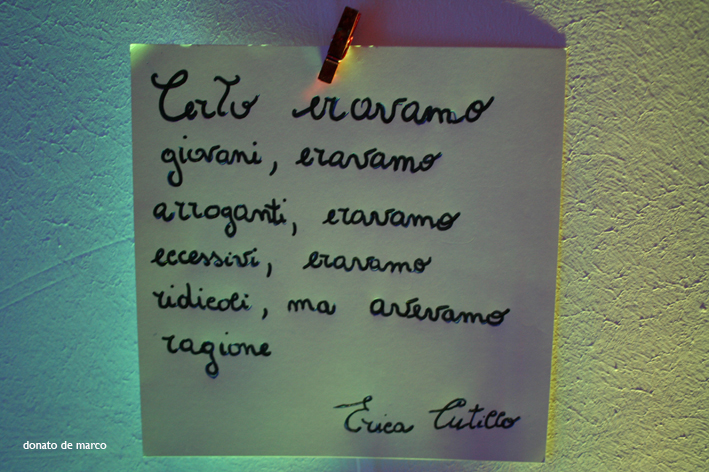 Certo eravamo
giovani, eravamo
arroganti, eravamo
eccessivi, eravamo
ridicoli, ma avevamo
ragione
Erica Cutillo
donato de marco